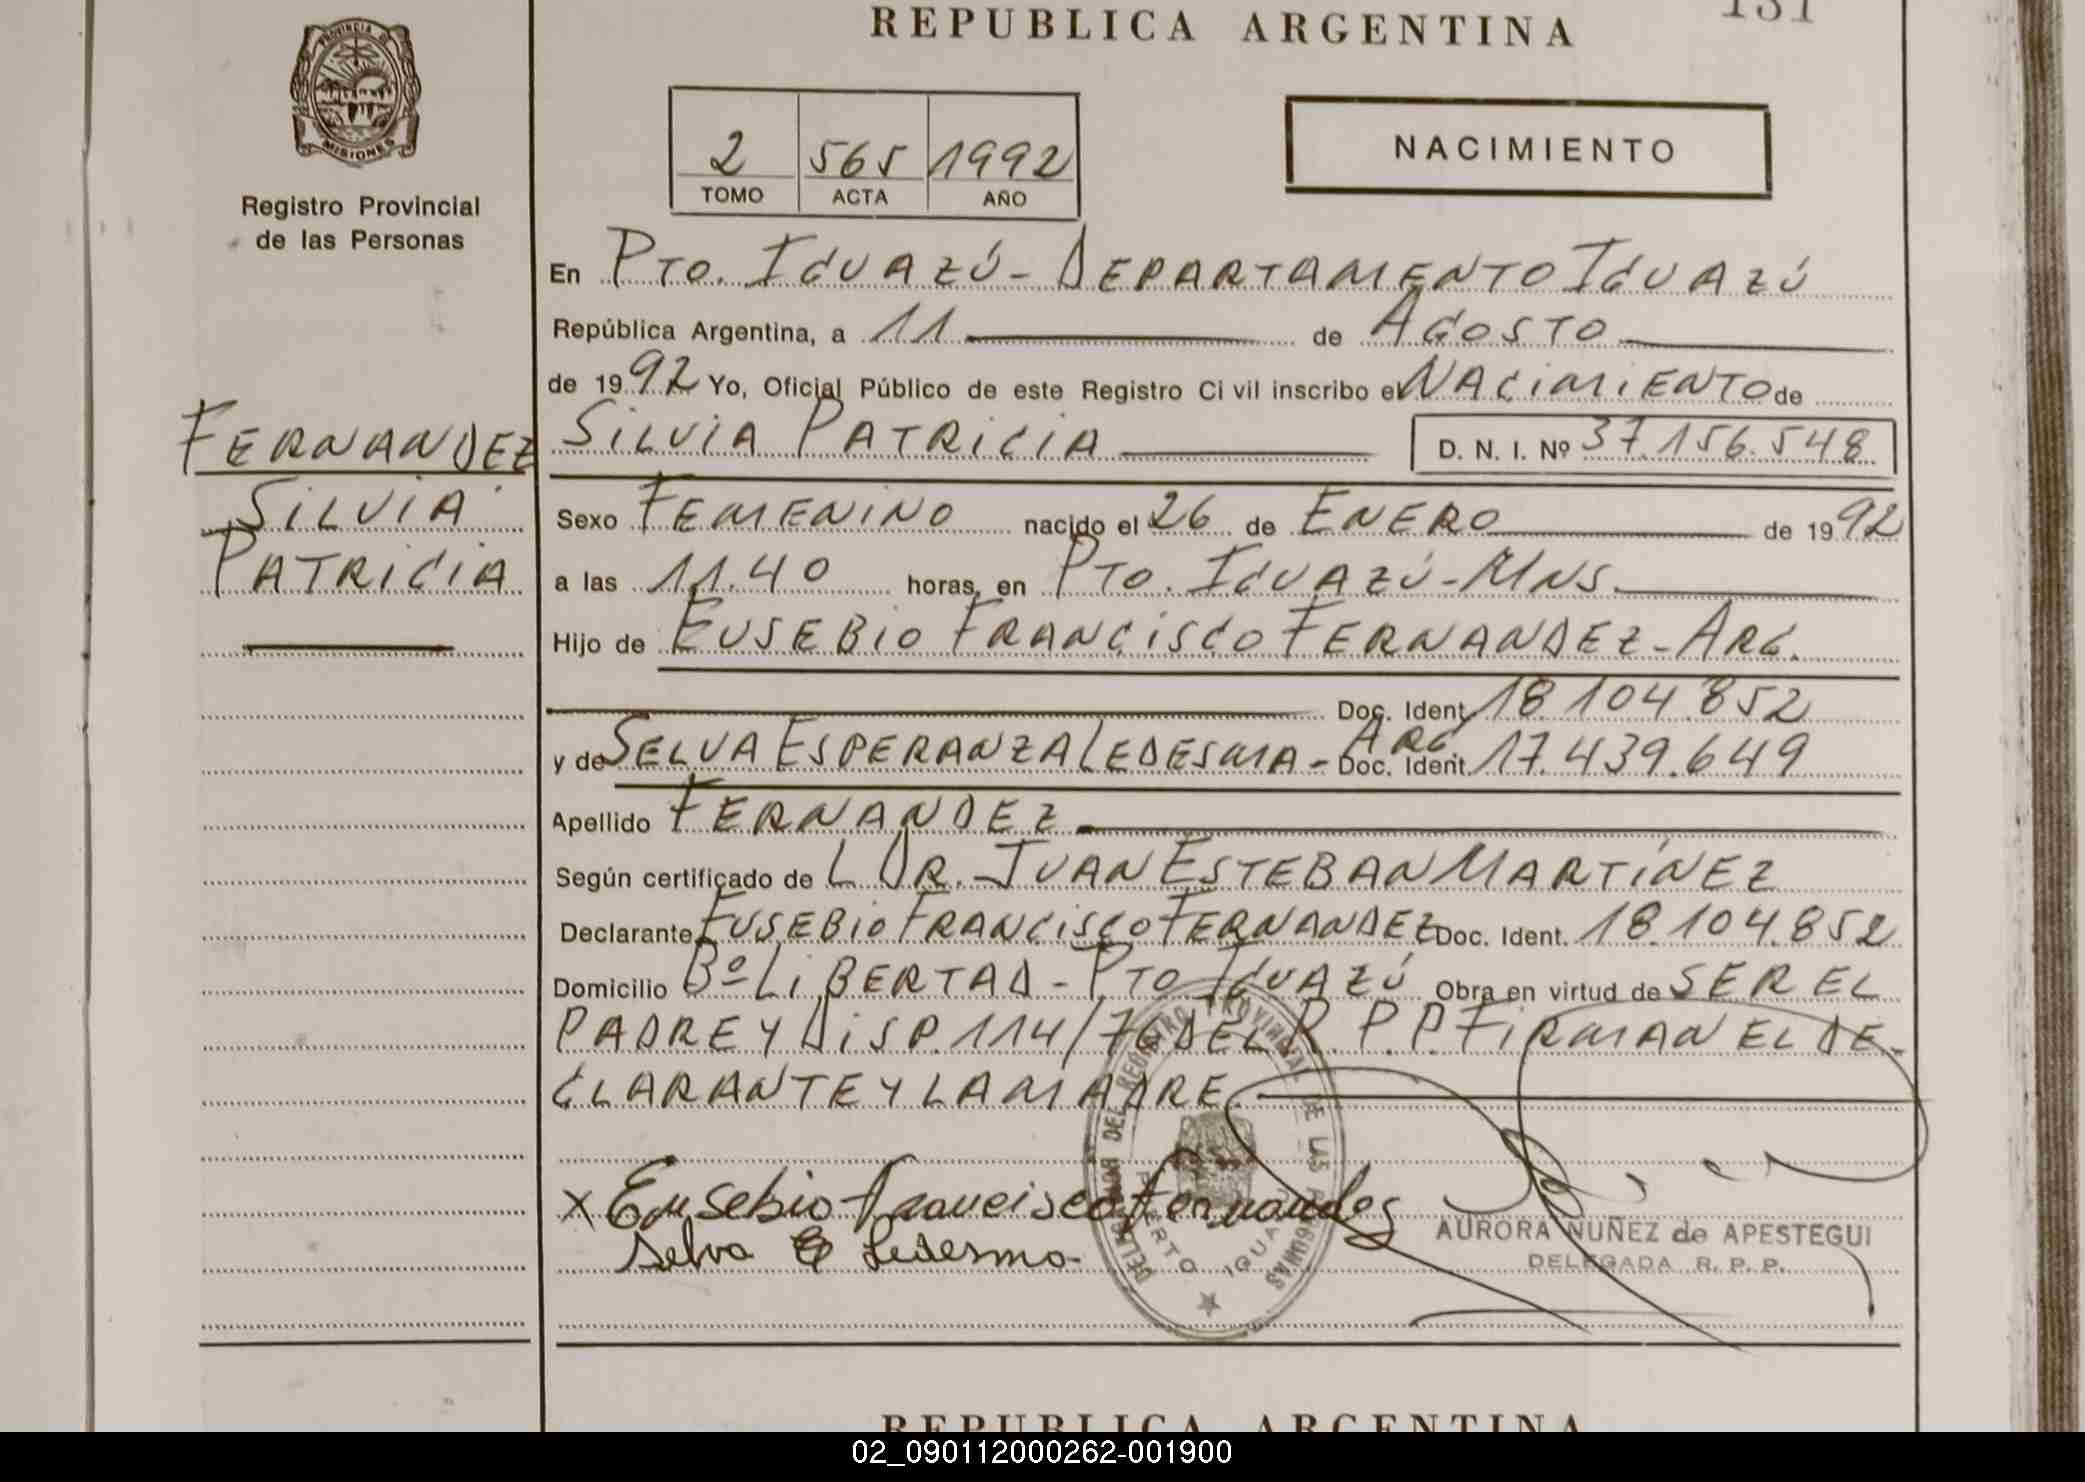 REPUBLICA ARGENTINA
131
PROVINCIA DE
MISIONES
Registro Provincial
de las Personas
2 565 1992
TOMO ACTA AÑO
NACIMIENTO
En PTO. IGUAZÚ - DEPARTAMENTO IGUAZÚ
República Argentina, a 11 de AGOSTO
de 1992 Yo, Oficial Público de este Registro Civil inscribo el NACIMIENTO de
FERNANDEZ
SILVIA
PATRICIA
SILVIA PATRICIA D. N. I. Nº 37.156.548
Sexo FEMENINO nacido el 26 de ENERO de 1992
a las 11.40 horas, en PTO. IGUAZÚ - MNS.
Hijo de EUSEBIO FRANCISCO FERNANDEZ - ARG.
Doc. Ident. 18.104.852
y de SELVA ESPERANZA LEDESMA - ARG. Doc. Ident. 17.439.649
Apellido FERNANDEZ
Según certificado de L DR. JUAN ESTEBAN MARTÍNEZ
Declarante EUSEBIO FRANCISCO FERNANDEZ Doc. Ident. 18.104.852
Domicilio Bº LIBERTAD - PTO IGUAZÚ Obra en virtud de SER EL
PADRE Y DISP. 114/76 DEL R.P.P. FIRMAN EL DE-
CLARANTE Y LA MADRE.
X Eusebio Francisco Fernandez
Selva E Ledesma
DEL REGISTRO PROVINCIAL DE LAS PERSONAS
PUERTO IGUAZU
AURORA NUÑEZ de APESTEGUI
DELEGADA R. P. P.
REPUBLICA ARGENTINA
02_090112000262-001900